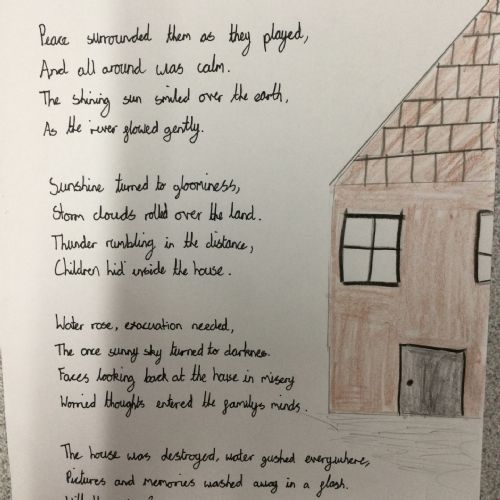 Peace surrounded them as they played,
And all around was calm.
The shining sun smiled over the earth,
As the river flowed gently.
Sunshine turned to gloominess,
Storm clouds rolled over the land.
Thunder rumbling in the distance,
Children hid inside the house.
Water rose, evacuation needed,
The once sunny sky turned to darkness.
Faces looking back at the house in misery
Worried thoughts entered the familys minds.
The house was destroyed, water gushed everywhere,
Pictures and memories washed away in a flash.